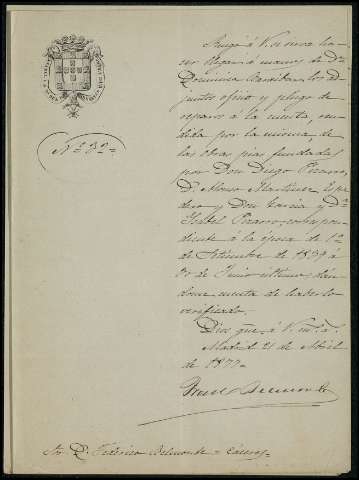 Nº 32=
Ruego á V. se sirva ha-
cer llegar á manos de Dª
Dominica los ad-
juntos oficio y pliego de
reparos á la cuenta, ren-
dida por la misma de
las obras pias fundadas
por Don Diego Pizarro,
D. Alonso Martinez
y Don Garcia y Dª
Isabel Pizarro, correspon-
diente á la época de 1º
de Setiembre de 1839 á
de Junio último, dán-
dome cuenta de haberlo
verificado.
Dios gue. á V. m. a.
Madrid 21 de Abril
de 1877=
Sr. D. Federico Belmonte = Cáceres=